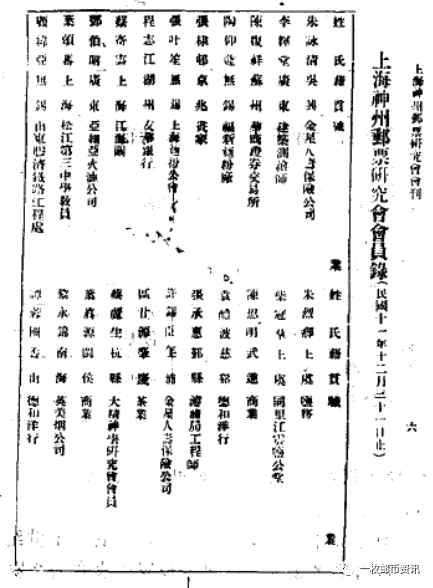 上海神州郵票研究會會刊
六
上海神州郵票研究會會員錄(民國十一年十二月三十一日止)
姓氏籍貫職業
朱詠清吳興金星人壽保險公司
李輝堂廣東建築測繪師
陳復祥蘇州華商證券交易所
陶仰無錫福新麵粉廠
張棣邨京兆畫家
張叶笙無錫上海麵粉公會
程志江湖州友華銀行
蔡寄雲上海江海關
鄭伯昭廣東亞細亞火油公司
葉頌蕃上海松江第三中學教員
緯亞無錫山東膠濟鐵路工程處
姓氏籍貫職業
朱烈上虞鹽務
柴冠羣上虞同里江雲鹽公堂
陳思明武進商業
袁醴波慈谿德和洋行
張承惠鄞縣濬浦局工程師
許金星人壽保險公司
區甘源肇慶茶業
蔡生杭縣大精神學研究會會員
葉源閩侯商業
黎永錦南海英美烟公司
譚蓉圃香山德和洋行
一枚邮币资讯